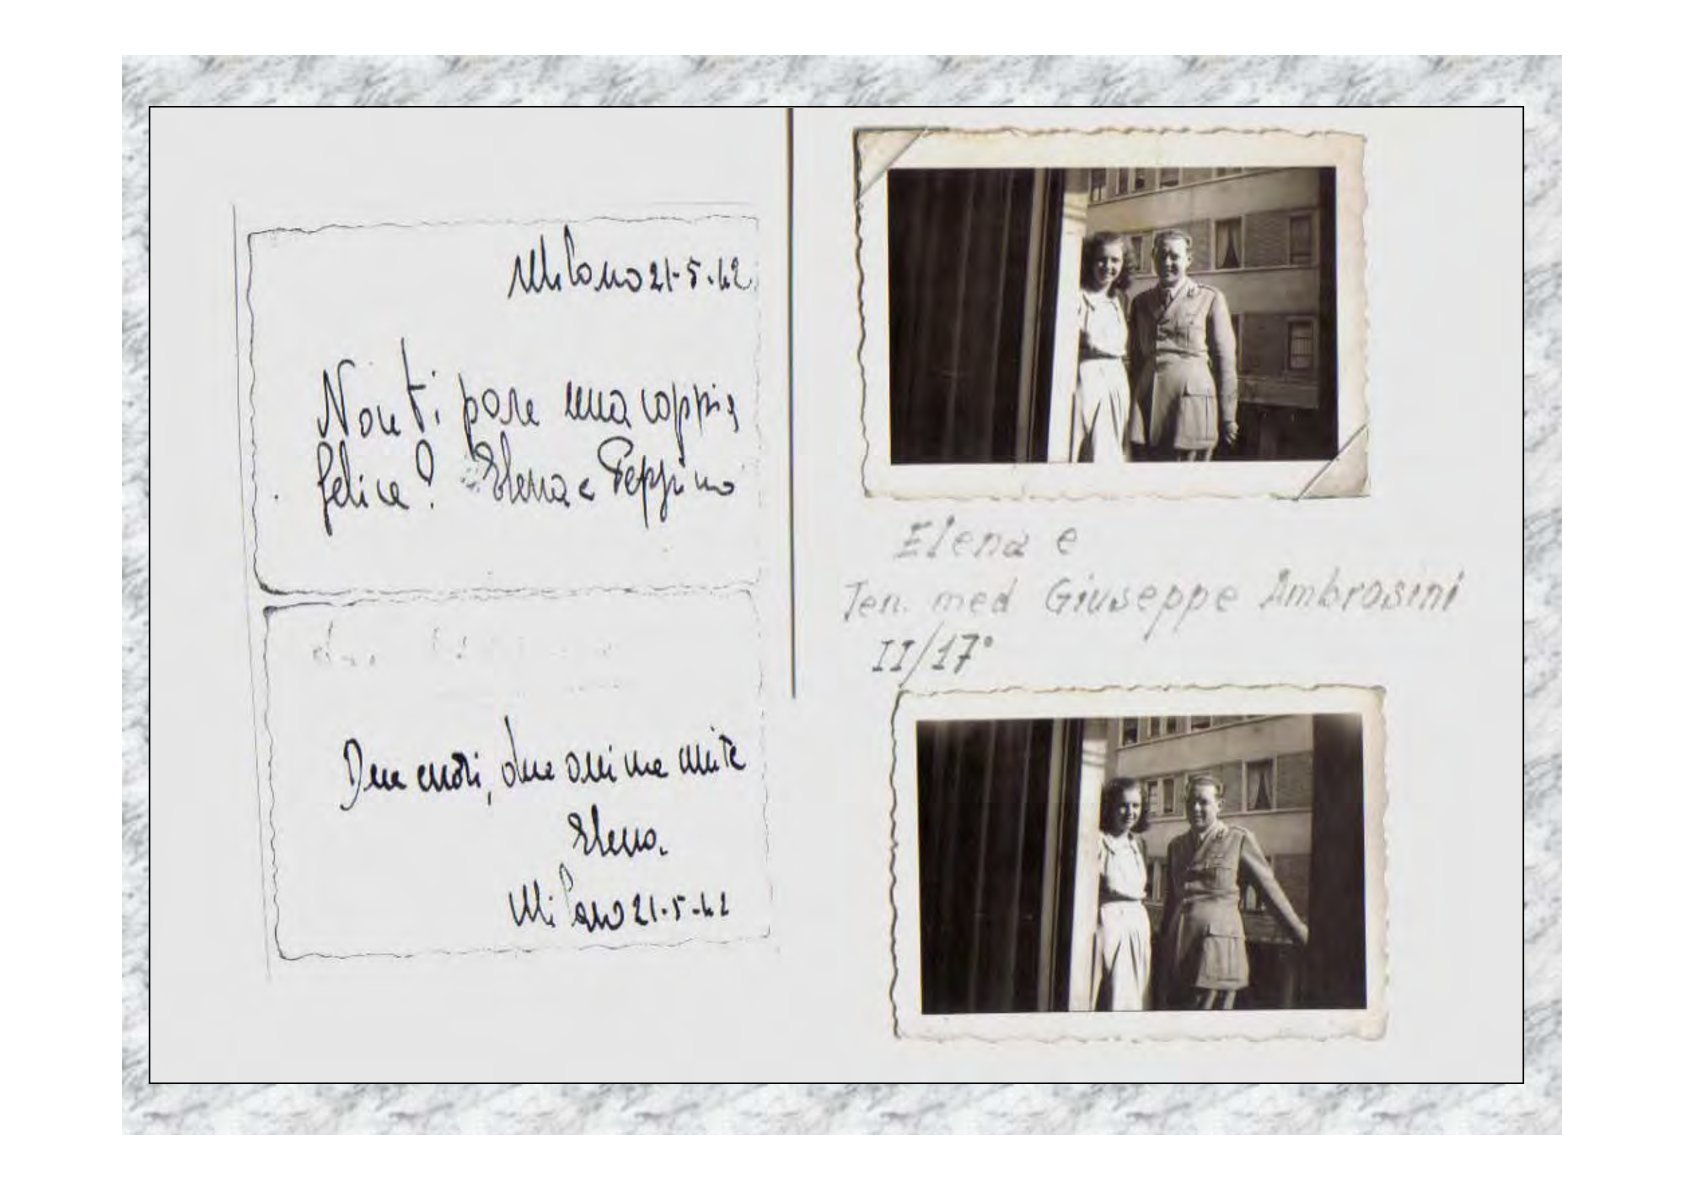 Milano 21-5-42
Non ti pare una coppia
felice? Elena e Peppino
Due cuori, due anime unite
Elena.
Milano 21-5-42
Elena e
Ten. med Giuseppe Ambrosini
II/17°